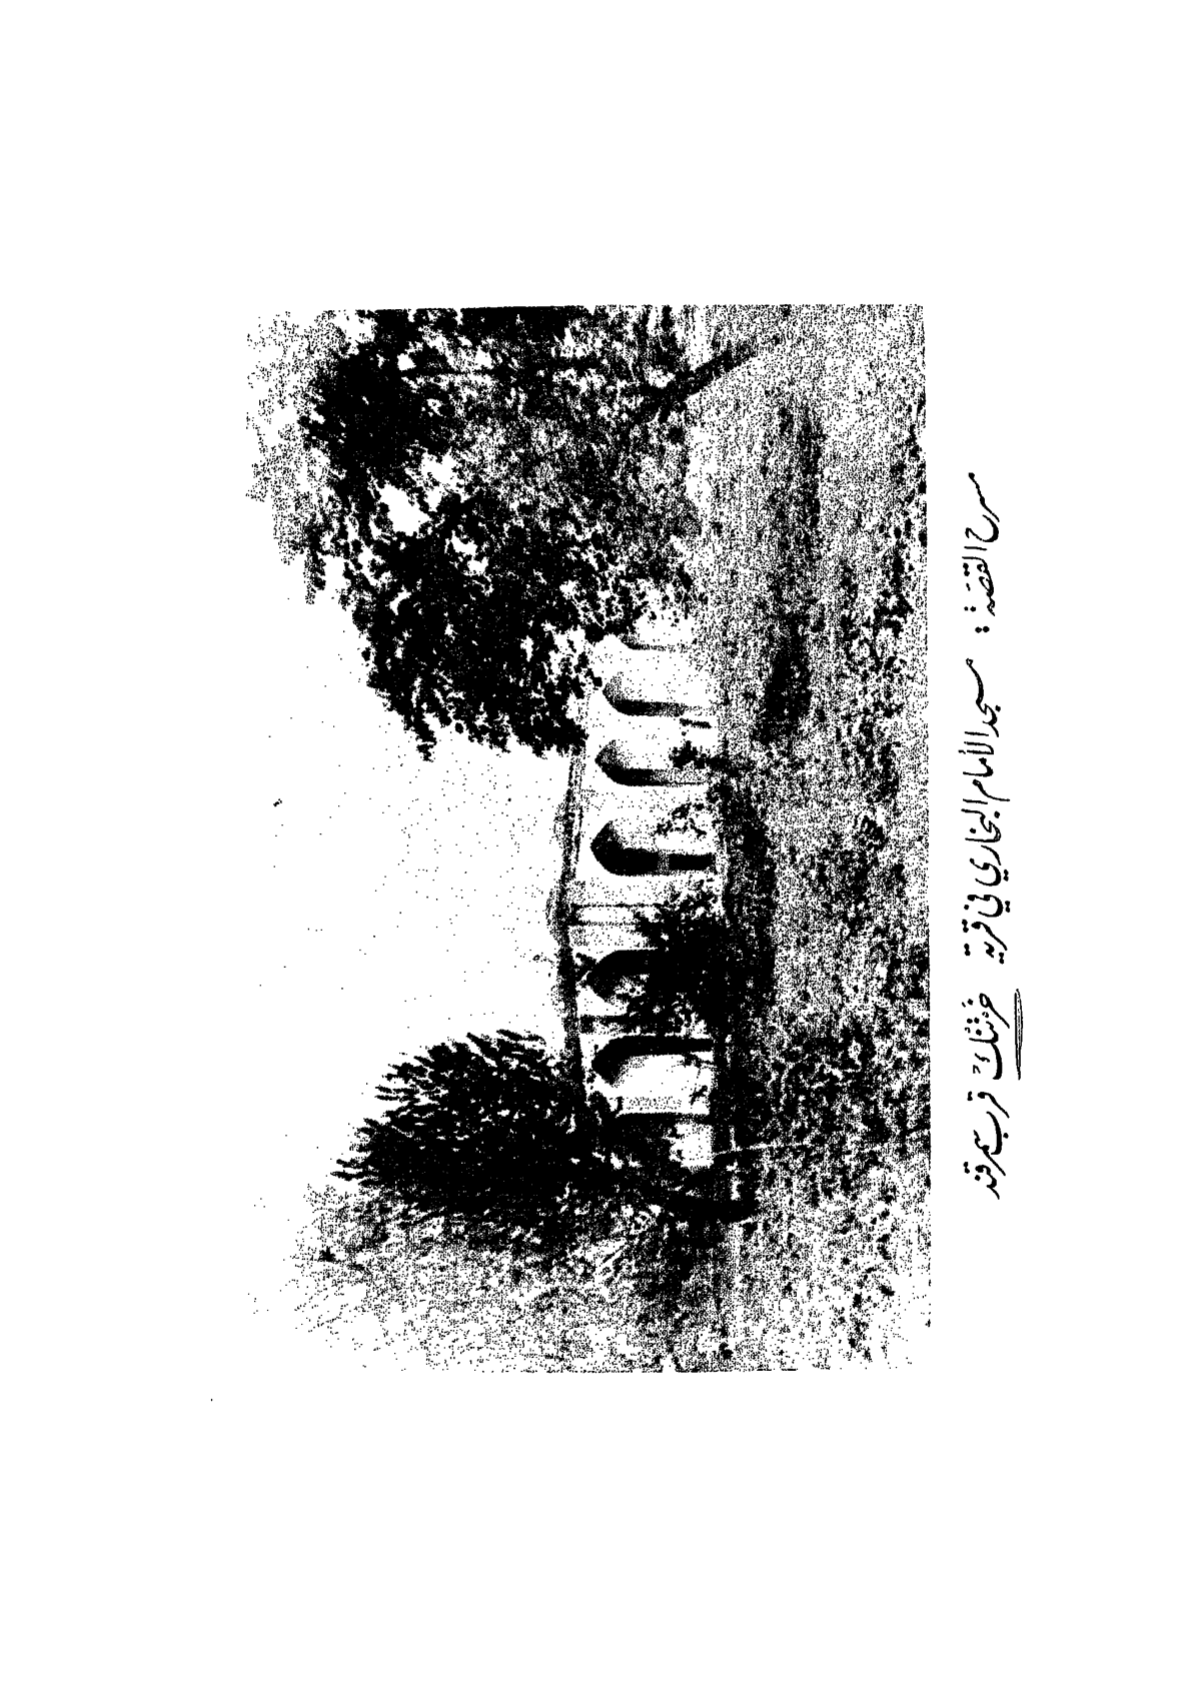 مسرح القصة : مسجد الأمام البخاري في قرية خرتنك قرب سمرقند